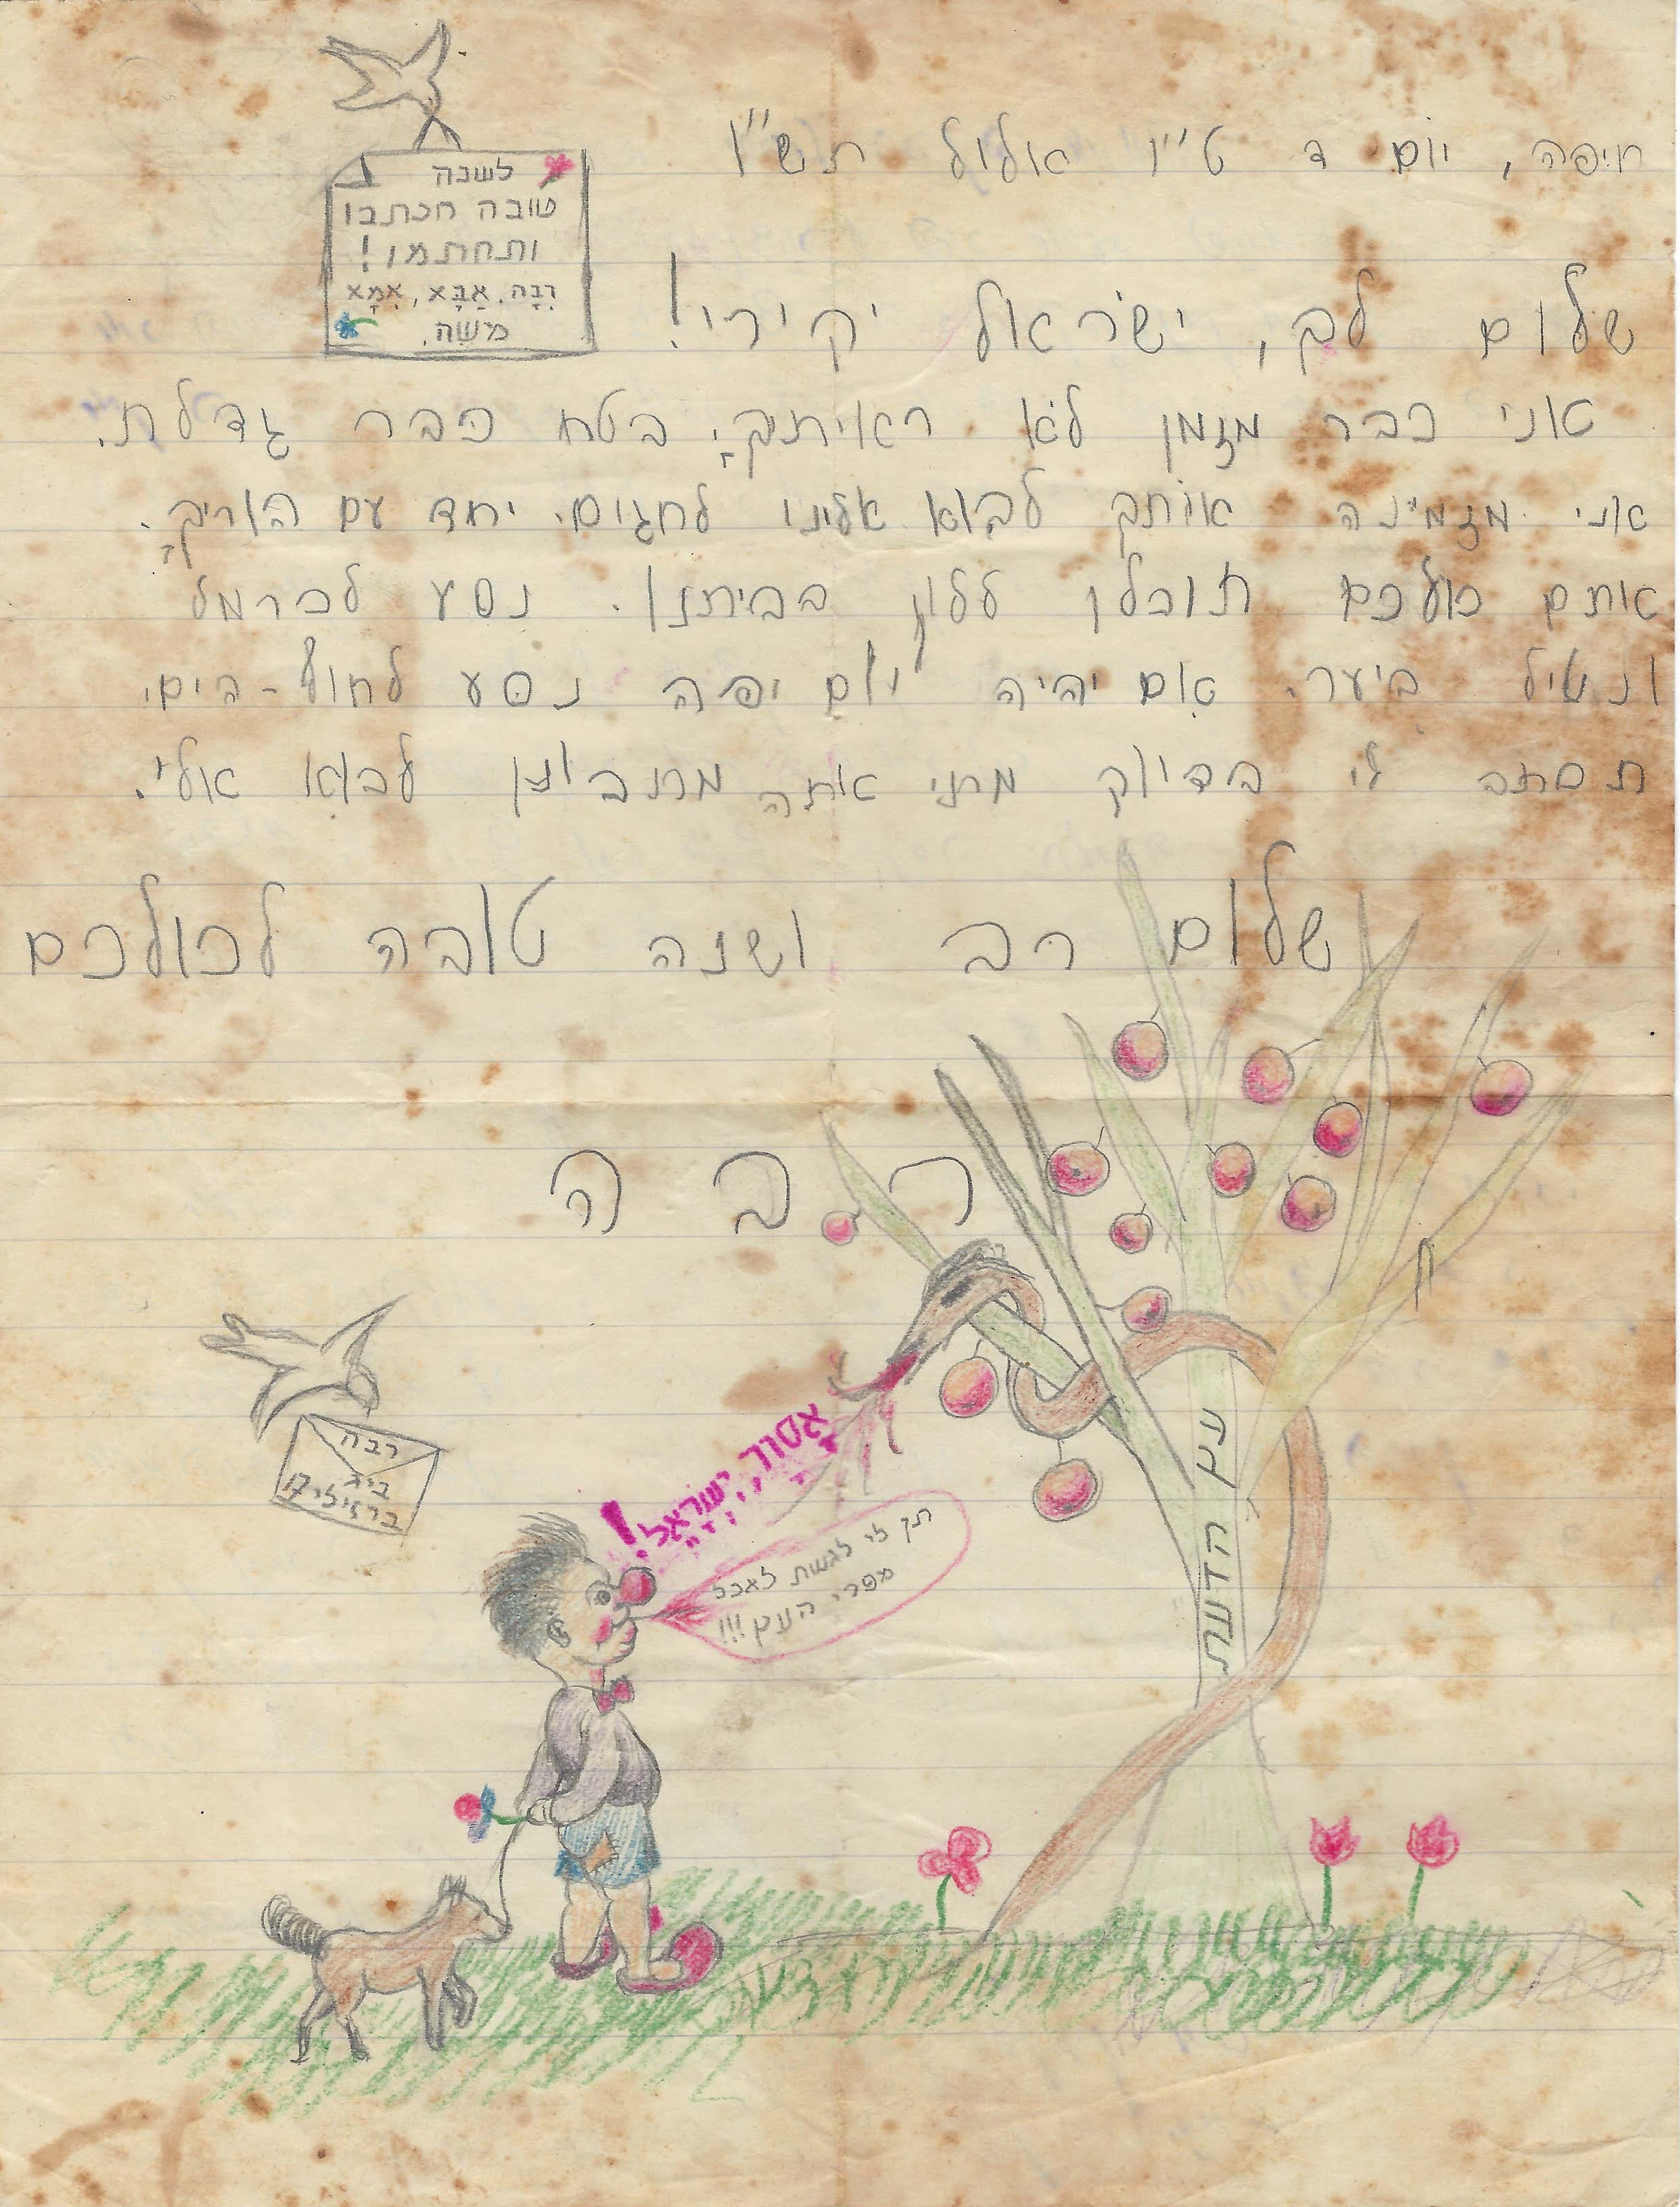 חיפה, יום ד ט"ו אלול תש"ו
לשנה
טובה תכתבו
ותחתמו!
רִבָּה, אַבָּא, אִמָּא
משה.
שלום לך, ישראל יקירי!
אני כבר מזמן לא ראיתיך, בטח כבר גדלת.
אני מזמינה אותך לבוא אלינו לחגים, יחד עם הוריך.
אתם כולכם תוכלו ללון בביתנו. נסע לכרמל
ונטיל ביער. אם יהיה יום יפה נסע לחוף-הים.
תכתב לי בדיוק מתי אתה מתכונן לבוא אלי.
שלום רב ושנה טובה לכולכם
רבה
אָסוּר, יִשְׂרָאֵל!
תן לי לגשת לאכל
מפרי העץ!!!
עץ הדעת
רבה
ביג
ברזילי 17